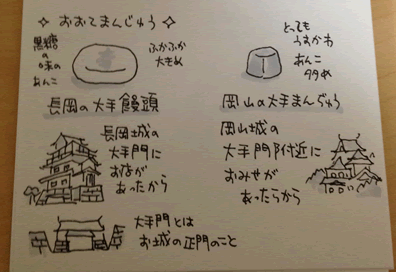 ✧ おおてまんじゅう ✧
黒糖
の
味の
あんこ
ふかふか
大きめ
長岡の大手饅頭
長岡城の
大手門に
お店が
あったから
とっても
うすかわ
あんこ
多め
岡山の大手まんぢゅう
岡山城の
大手門附近に
おみせが
あったらから
大手門とは
お城の正門のこと